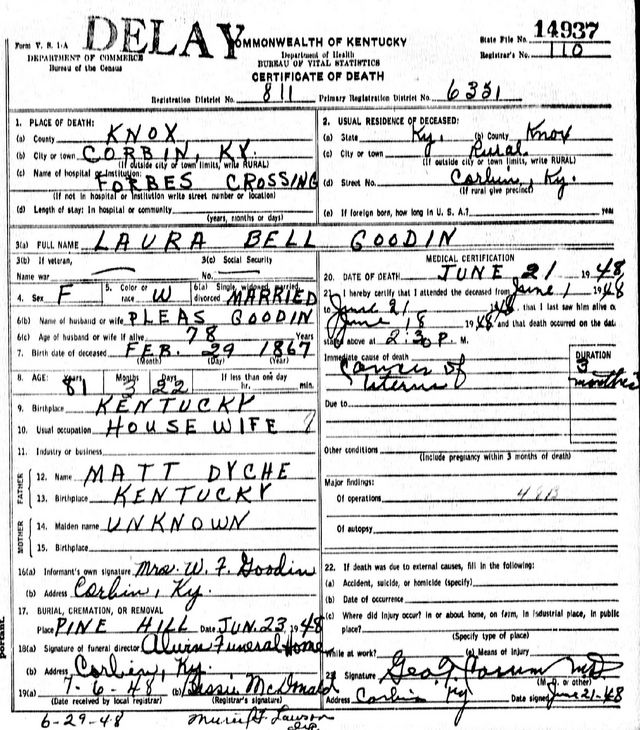 DELAY
Form V. S. 1-A
DEPARTMENT OF COMMERCE
Bureau of the Census
COMMONWEALTH OF KENTUCKY
Department of Health
BUREAU OF VITAL STATISTICS
CERTIFICATE OF DEATH
State File No. 14937
Registrar's No. 110
Registration District No. 811 Primary Registration District No. 6331
1. PLACE OF DEATH:
(a) County KNOX
(b) City or town CORBIN, KY.
(If outside city or town limits, write RURAL)
(c) Name of hospital or institution:
FORBES CROSSING
(If not in hospital or institution write street number or location)
(d) Length of stay: In hospital or community
(years, months or days)
2. USUAL RESIDENCE OF DECEASED:
(a) State Ky. (b) County Knox
(c) City or town Rural
(If outside city or town limits, write RURAL)
(d) Street No. Corbin, Ky.
(If rural give precinct)
(e) If foreign born, how long in U. S. A.? year
3(a) FULL NAME LAURA BELL GOODIN
3(b) If veteran,
Name war
3(c) Social Security
No.
4. Sex F 5. Color or race W 6(a) Single, widowed, married, divorced MARRIED
6(b) Name of husband or wife PLEAS GOODIN
6(c) Age of husband or wife if alive 78 Years
7. Birth date of deceased FEB. 29 1867
(Month) (Day) (Year)
8. AGE: Years 81 Months 3 Days 22 If less than one day
hr. min.
9. Birthplace KENTUCKY
10. Usual occupation HOUSE WIFE
11. Industry or business
FATHER
12. Name MATT DYCHE
13. Birthplace KENTUCKY
MOTHER
14. Maiden name UNKNOWN
15. Birthplace
16(a) Informant's own signature Mrs. W. F. Goodin
(b) Address Corbin, Ky.
17. BURIAL, CREMATION, OR REMOVAL
Place PINE HILL Date JUN. 23 1948
18(a) Signature of funeral director Funeral Home
(b) Address Corbin, Ky.
19(a) 7-6-48 (b) Bessie McDonald
(Date received by local registrar) (Registrar's signature)
6-29-48
MEDICAL CERTIFICATION
20. DATE OF DEATH JUNE 21 1948
21. I hereby certify that I attended the deceased from June 1 1948
to June 21 48, that I last saw him alive o
June 18 1948 and that death occurred on the dat
stated above at 2:30 P. M.
Immediate cause of death
Cancer of
Uterus
DURATION
3
months
Due to
Other conditions
(Include pregnancy within 3 months of death)
Major findings:
Of operations
Of autopsy
22. If death was due to external causes, fill in the following:
(a) Accident, suicide, or homicide (specify)
(b) Date of occurrence
(c) Where did injury occur? In or about home, on farm, in industrial place, in public
place?
(Specify type of place)
While at work? (e) Means of injury
23. Signature M.D.
(M. D. or other)
Address Corbin Ky Date signed June 21-48